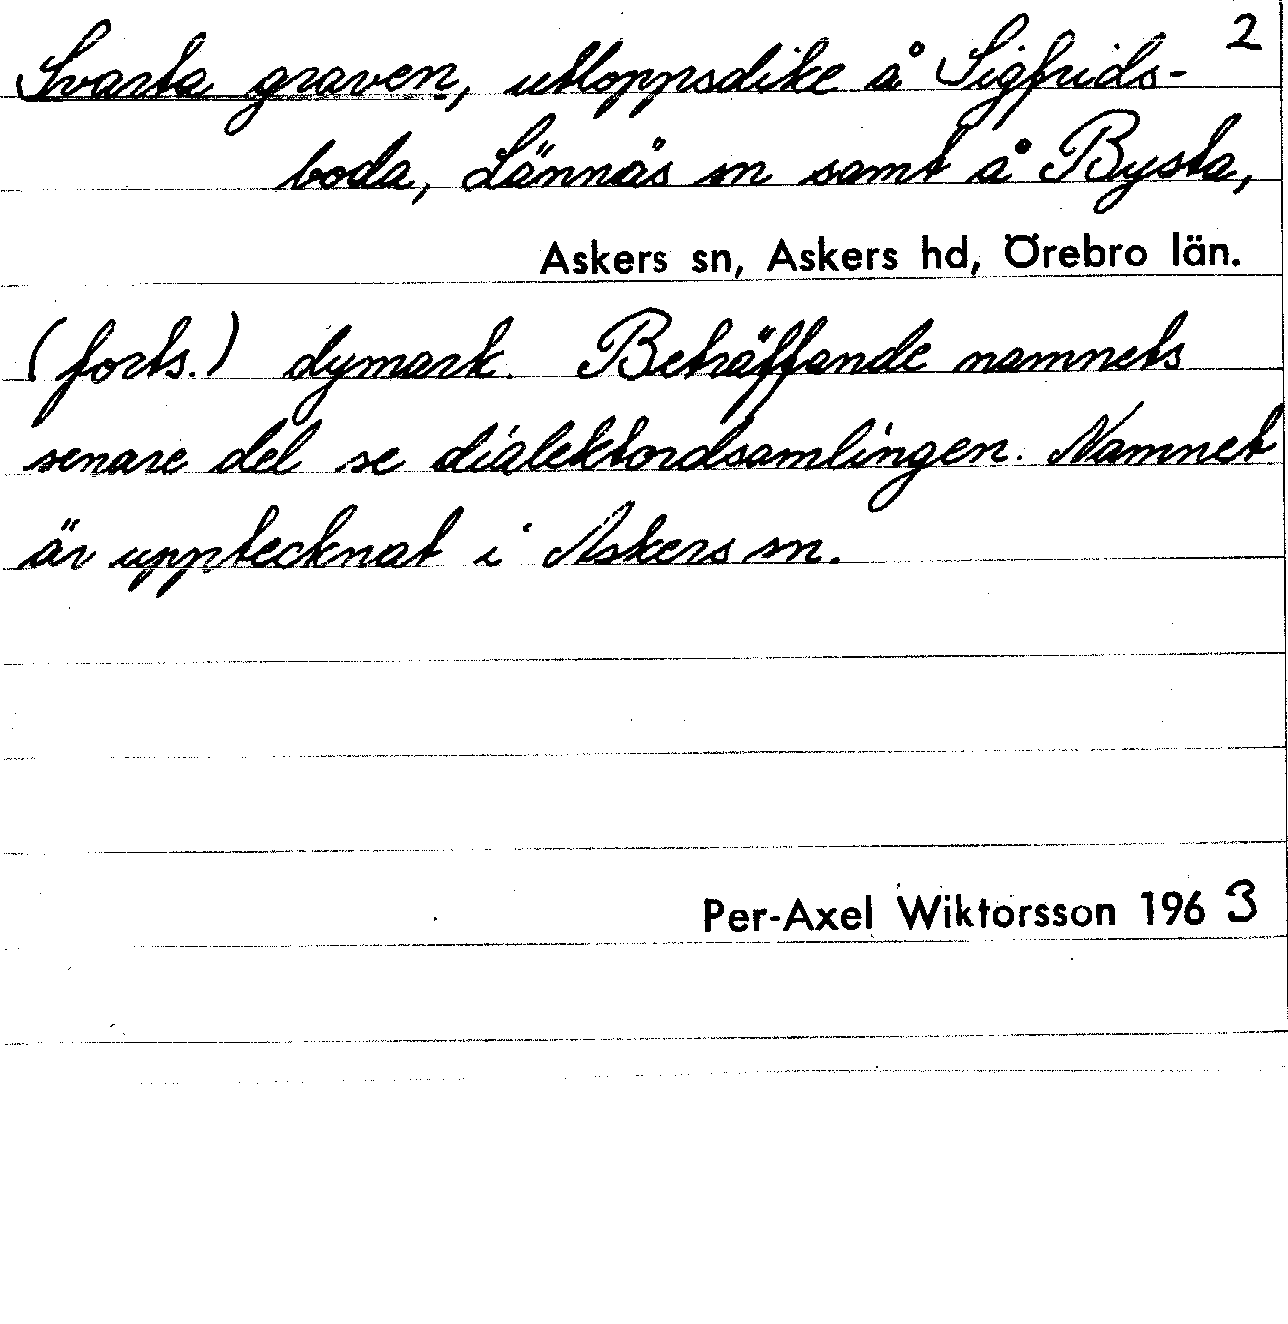 2
Svarta graven, utloppsdike å Sigfrids-
boda, Lännäs sn samt å Bysta,
Askers sn, Askers hd, Örebro län.
(forts.) dymark. Beträffande namnets
senare del se dialektordsamlingen. Namnet
är upptecknat i Askers sn.
Per-Axel Wiktorsson 1963